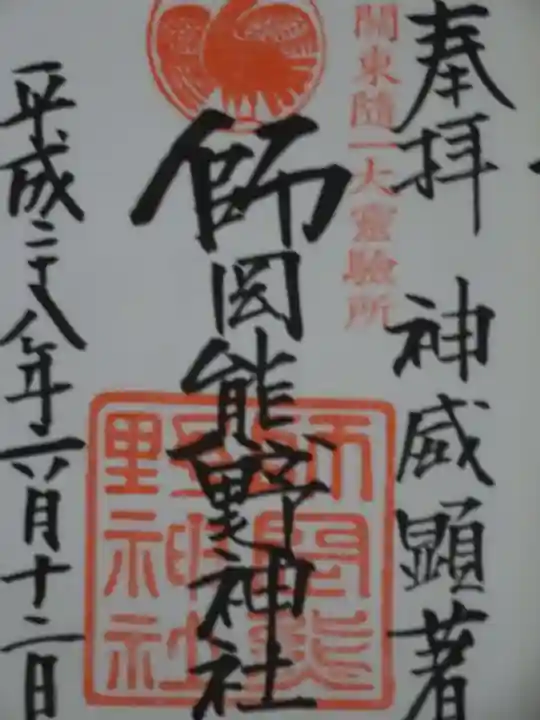 奉拝 神威顕著
關東隨一大靈驗所
師岡熊野神社
師岡熊
野神社
平成二十八年六月十二日